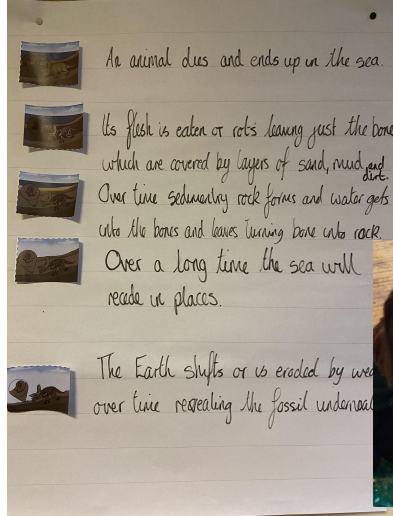 An animal dies and ends up in the sea.
Its flesh is eaten or rots leaving just the bone
which are covered by layers of sand, mud, and
dirt.
Over time sedimentry rock forms and water gets
into the bones and leaves turning bone into rock.
Over a long time the sea will
recede in places.
The Earth shifts or is eroded by wea
over time revealing the fossil underneat